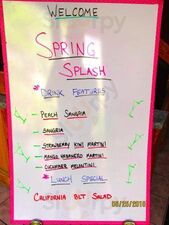 WELCOME
SPRING
SPLASH
* DRINK FEATURES
- PEACH SANGRIA
- SANGRIA
- STRAWBERRY KIWI MARTINI
- MANGO HABANERO MARTINI
- CUCUMBER MELONTINI
* LUNCH SPECIAL
CALIFORNIA BLT SALAD